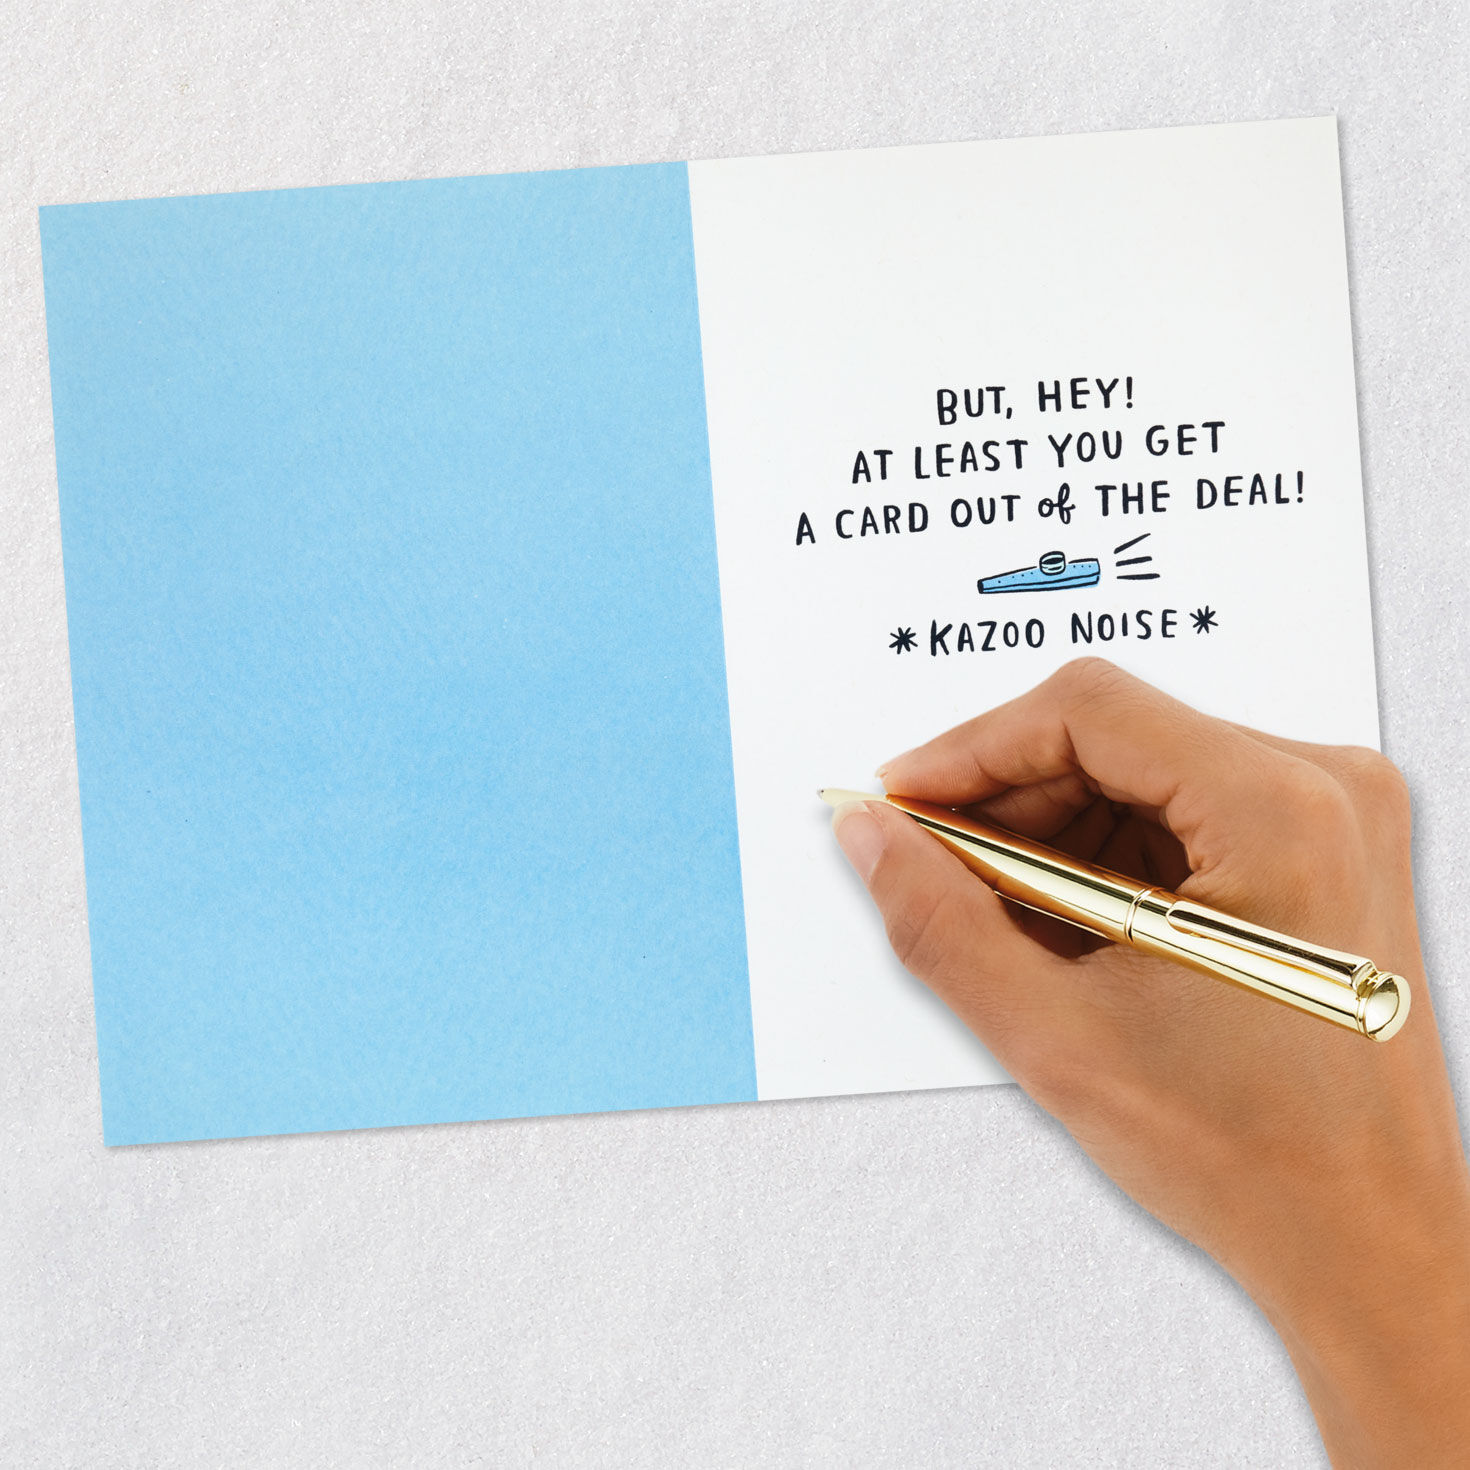 BUT, HEY!
AT LEAST YOU GET
A CARD OUT of THE DEAL!
*KAZOO NOISE*